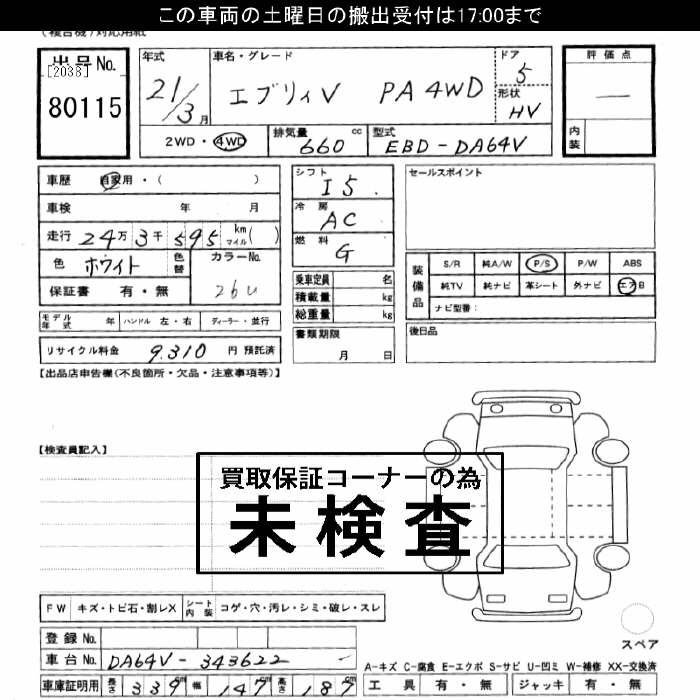 この車両の土曜日の搬出受付は17:00まで
(複合機)対応用紙
出品No.
[2038]
80115
年式
21/3月
車名・グレード
エブリィV PA 4WD
ドア
5
形状
HV
2WD・4WD
排気量
660 cc
型式
EBD-DA64V
評価点
—
内装
車歴 自家用・( )
車検 年 月
走行 24万3千595 km マイル( )
色 ホワイト 色替
カラーNo.
26U
保証書 有・無
シフト
I5
冷房
AC
燃料
G
乗車定員 名
積載量 kg
総重量 kg
書類期限
月 日
セールスポイント
装備品
S/R 純A/W P/S P/W ABS
純TV 純ナビ 革シート 外ナビ エアB
ナビ型番:
後日品
モデル年式 年 ハンドル 左・右 ディーラー・並行
リサイクル料金 9,310 円 預託済
【出品店申告欄(不良箇所・欠品・注意事項等)】
【検査員記入】
買取保証コーナーの為
未検査
FW キズ・トビ石・割レX シート内装 コゲ・穴・汚レ・シミ・破レ・スレ
登録No.
車台No. DA64V-343622
車庫証明用 長さ 339cm 幅 147cm 高さ 187cm
スペア
A-キズ C-腐食 E-エクボ S-サビ U-凹ミ W-補修 XX-交換済
工具 有・無 ジャッキ 有・無